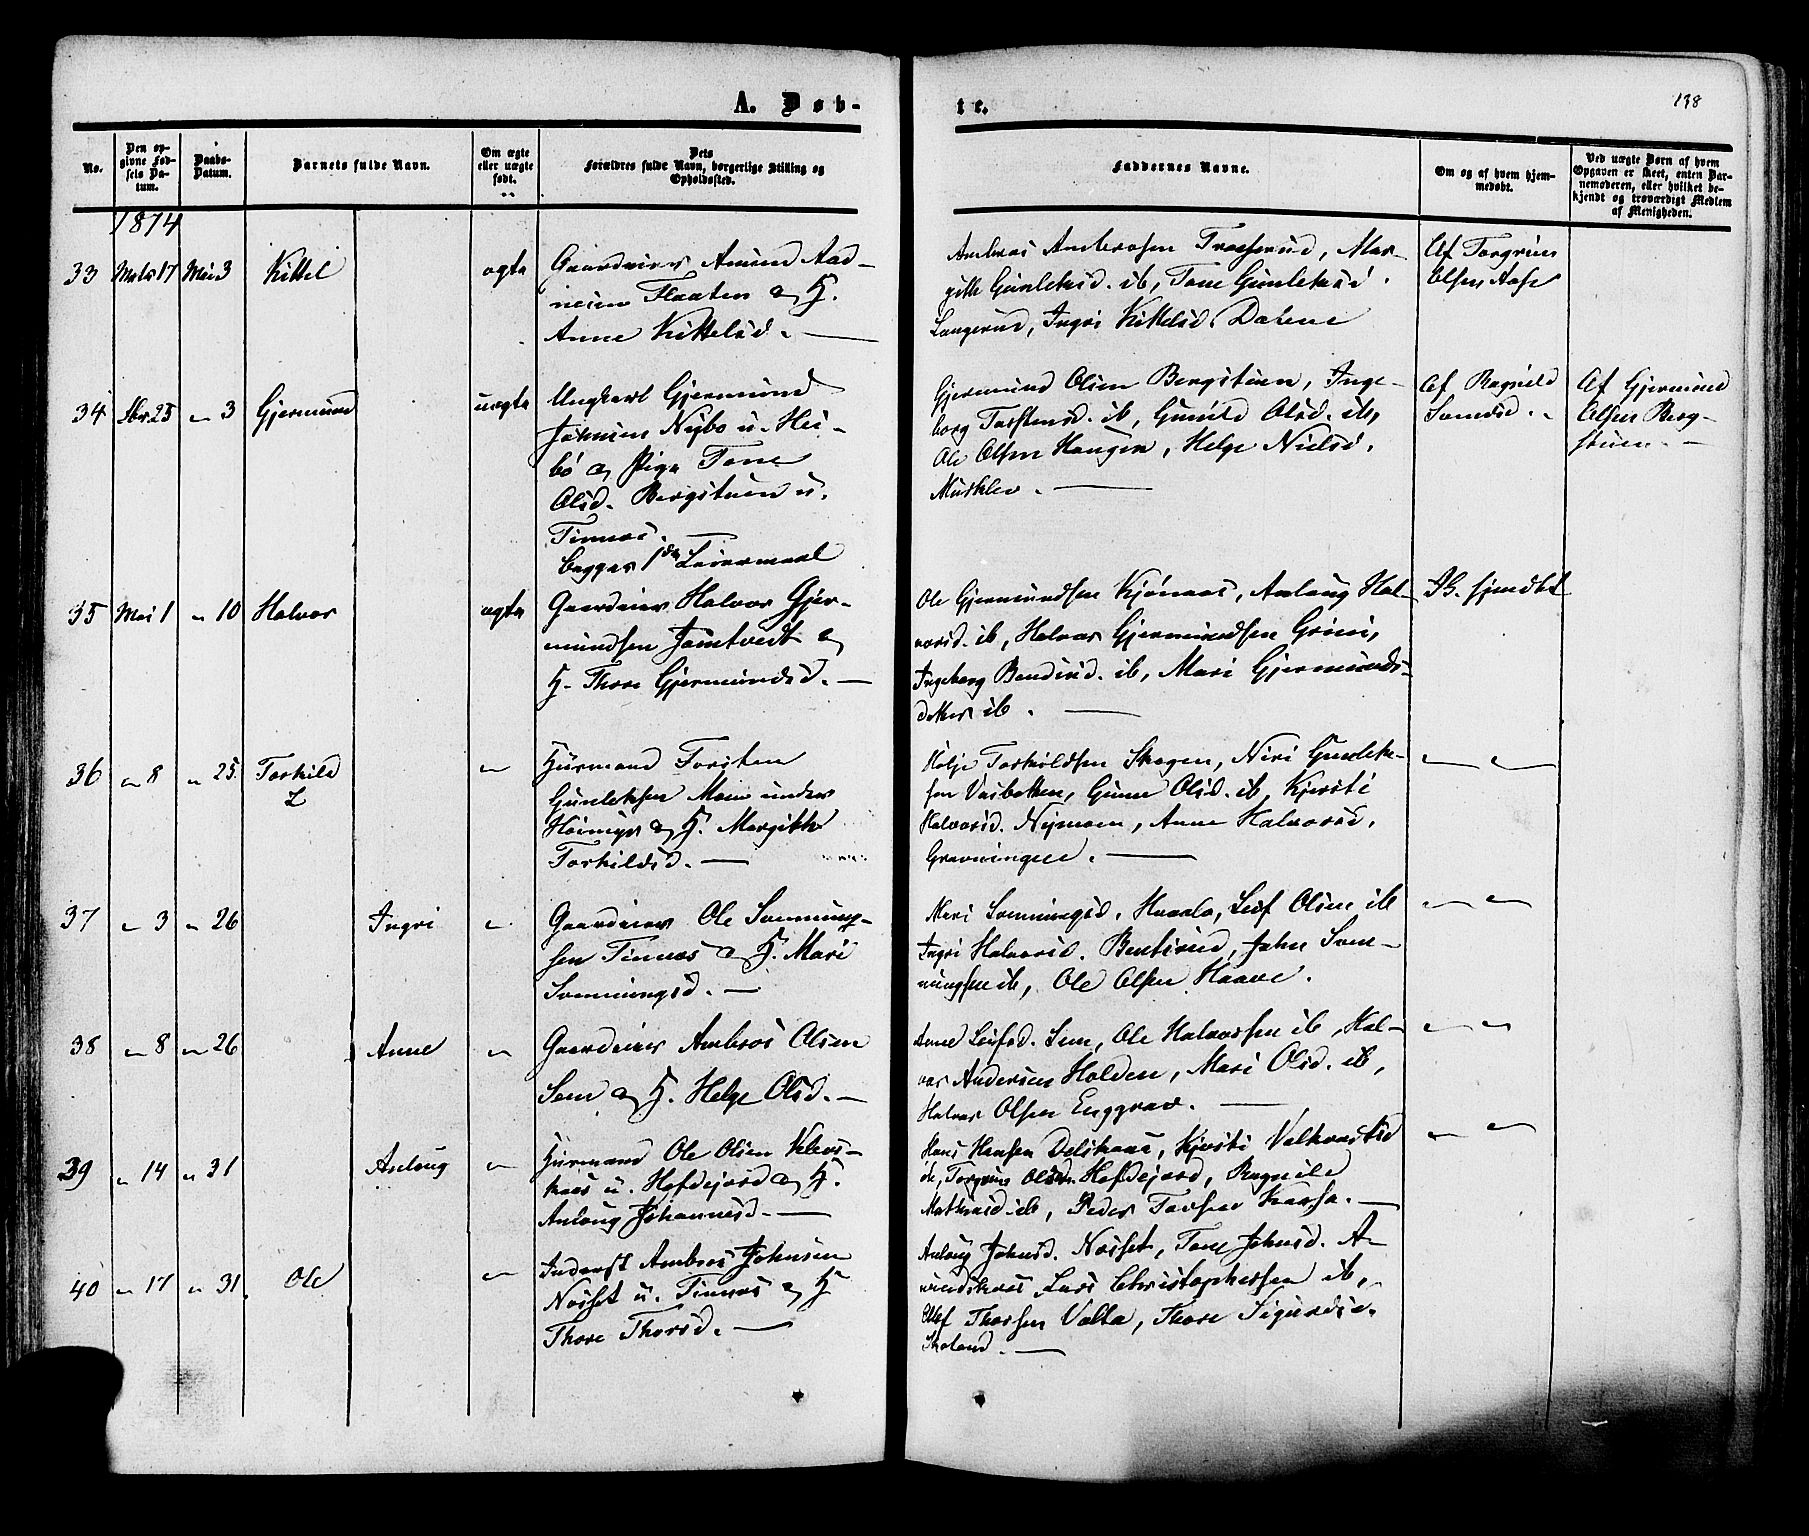 A. Døb-
te.
138
No.
Den op-
givne Fød-
sels Da-
tum.
Daabs-
Datum.
Barnets fulde Navn.
Om ægte
eller uægte
født.
Dets
Forældres fulde Navn, borgerlige Stilling og
Opholdssted.
Faddernes Navne.
Om og af hvem hjem-
medøbt.
Ved uægte Børn af hvem
Opgaven er skeet, enten Bar-
nemoderen, eller hvilket be-
kjendt og troværdigt Medlem
af Menigheden.
1874
33 17 Mai 3 Kittel ægte
Gaardeier Amund Aad-
Flaaten og H.
Anne Kittelsd.
Ambros Ambrosen Mar-
gith Gunleksd. ib, Tone Gunleksd.
Langerud, Ingri Kittelsd. Dalene
Af Torgrim
Olsen Aase
34 25 " 3 Gjermund uægte
Ungkarl Gjermund
Johnsen Nybo u. Hei-
bö og Pige Tone
Olsd. Bergstuen u.
Tinnæs.
begges 1ste Leiermaal
Gjermund Olsen Bergstuen, Inge-
borg Torstensd. ib, Gunild Olsd. ib,
Ole Olsen Haugen, Helge Nielsd.
Af Ragnild
Af Gjermund
Olsen Berg-
stuen.
35 Mai 1 " 10 Halvor ægte
Gaardeier Halvor Gjer-
mundsen Jamtvedt og
H. Thore Gjermundsd.
Ole Gjermundsen Kjønaas, Anlaug Hal-
vorsd. ib, Halvor Gjermundsen Grini,
Ingeborg ib, Mari Gjermunds-
datter ib.
Ib. hjemdbt
36 " 8 " 25 Torkild "
Husmand Torsten
Gunleksen Moen under
Høimyr og H. Margith
Torkildsd.
Torkildsen Skogen, Niri Gunlek-
sen Gunne Olsd. ib, Kjersti
Halvorsd. Nymoen, Anne Halvorsd.
Gravningen.
" "
37 " 3 " 26 Ingri "
Gaardeier Ole Sonnung-
sen Tinnæs og H. Mari
Sonnungsd.
Mari Sonnungsd. Leif Olsen ib
Ingri Halvorsd. Bentsrud, John Son-
nungsen ib, Ole Olsen Haave.
" "
38 " 8 " 26 Anne "
Gaardeier Ambros Olsen
Sem og H. Helge Olsd.
Anne Leifsd. Sem, Ole Halvorsen ib, Hal-
vor Andersen Holden, Mari Olsd. ib,
Halvor Olsen Enggrav.
" "
39 " 14 " 31 Anlaug "
Husmand Ole Olsen Klevs-
kaas u. Hofdejord og H.
Anlaug Johannesd.
Hans Hansen Kjersti
Torgrim Olsen Hofdejord, Ragnild
ib, Peder
" "
40 " 17 " 31. Ole "
Inderst Ambros Johnsen
Næset u. Tinnæs og H
Thore Thorsd.
Anlaug Johnsd. Næset, Tone Johnsd. A-
Lars Christophersen ib,
Thorsen Valla, Thore Sigurdsd.
Skoland.